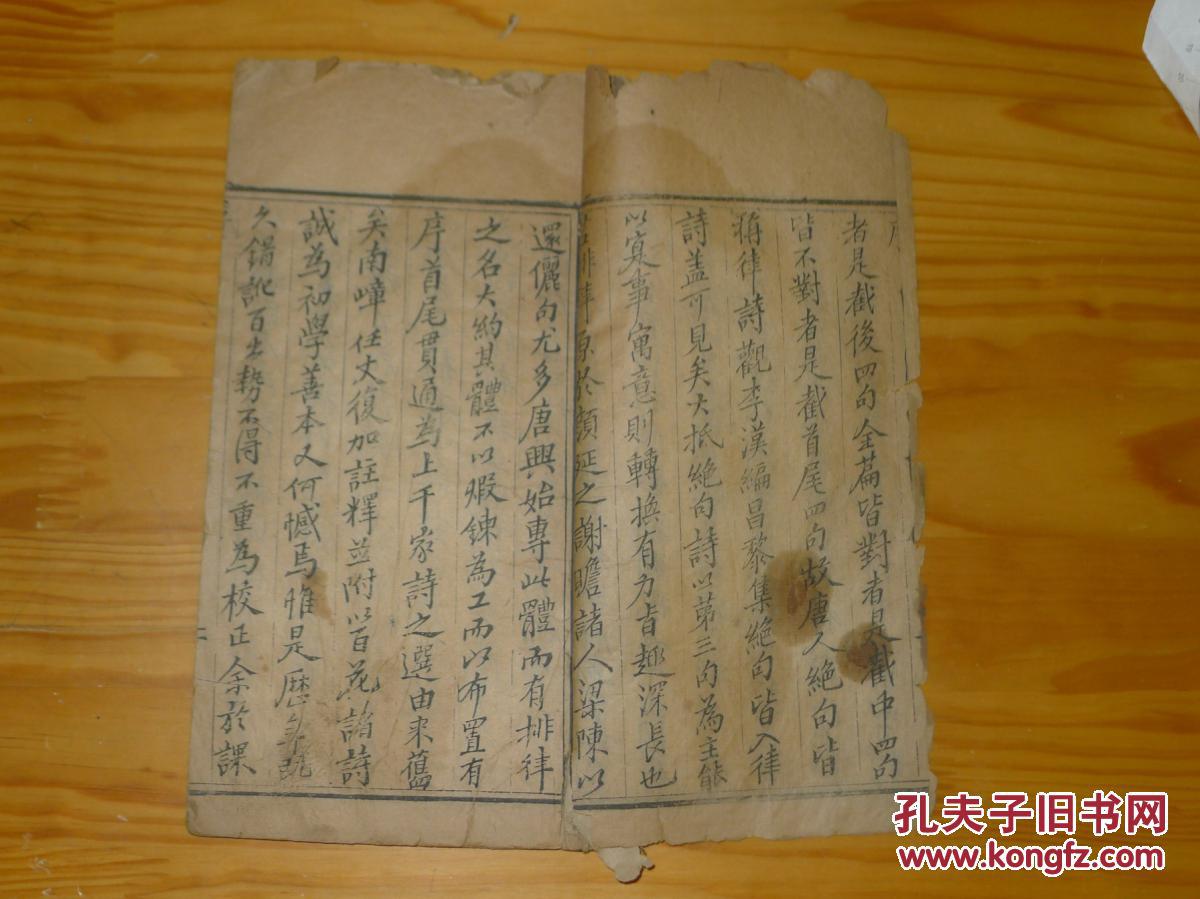 序
者是截後四句全篇皆對者是截中四句
皆不對者是截首尾四句故唐人絕句皆
稱律詩觀李漢編昌黎集絕句皆入律
詩盖可見矣大抵絕句詩以第三句為主能
以寔事寓意則轉換有力旨趣深長也
排律原於顏延之謝瞻諸人梁陳以
還儷句尤多唐興始專此體而有排律
之名大約其體不以煅鍊為工而以布置有
序首尾貫通為上千家詩之選由来舊
矣南嶂任丈復加註釋並附以百花諸詩
誠為初學善本又何憾焉惟是歷年既
久錯訛百出勢不得不重為校正余於課
孔夫子旧书网
www.kongfz.com